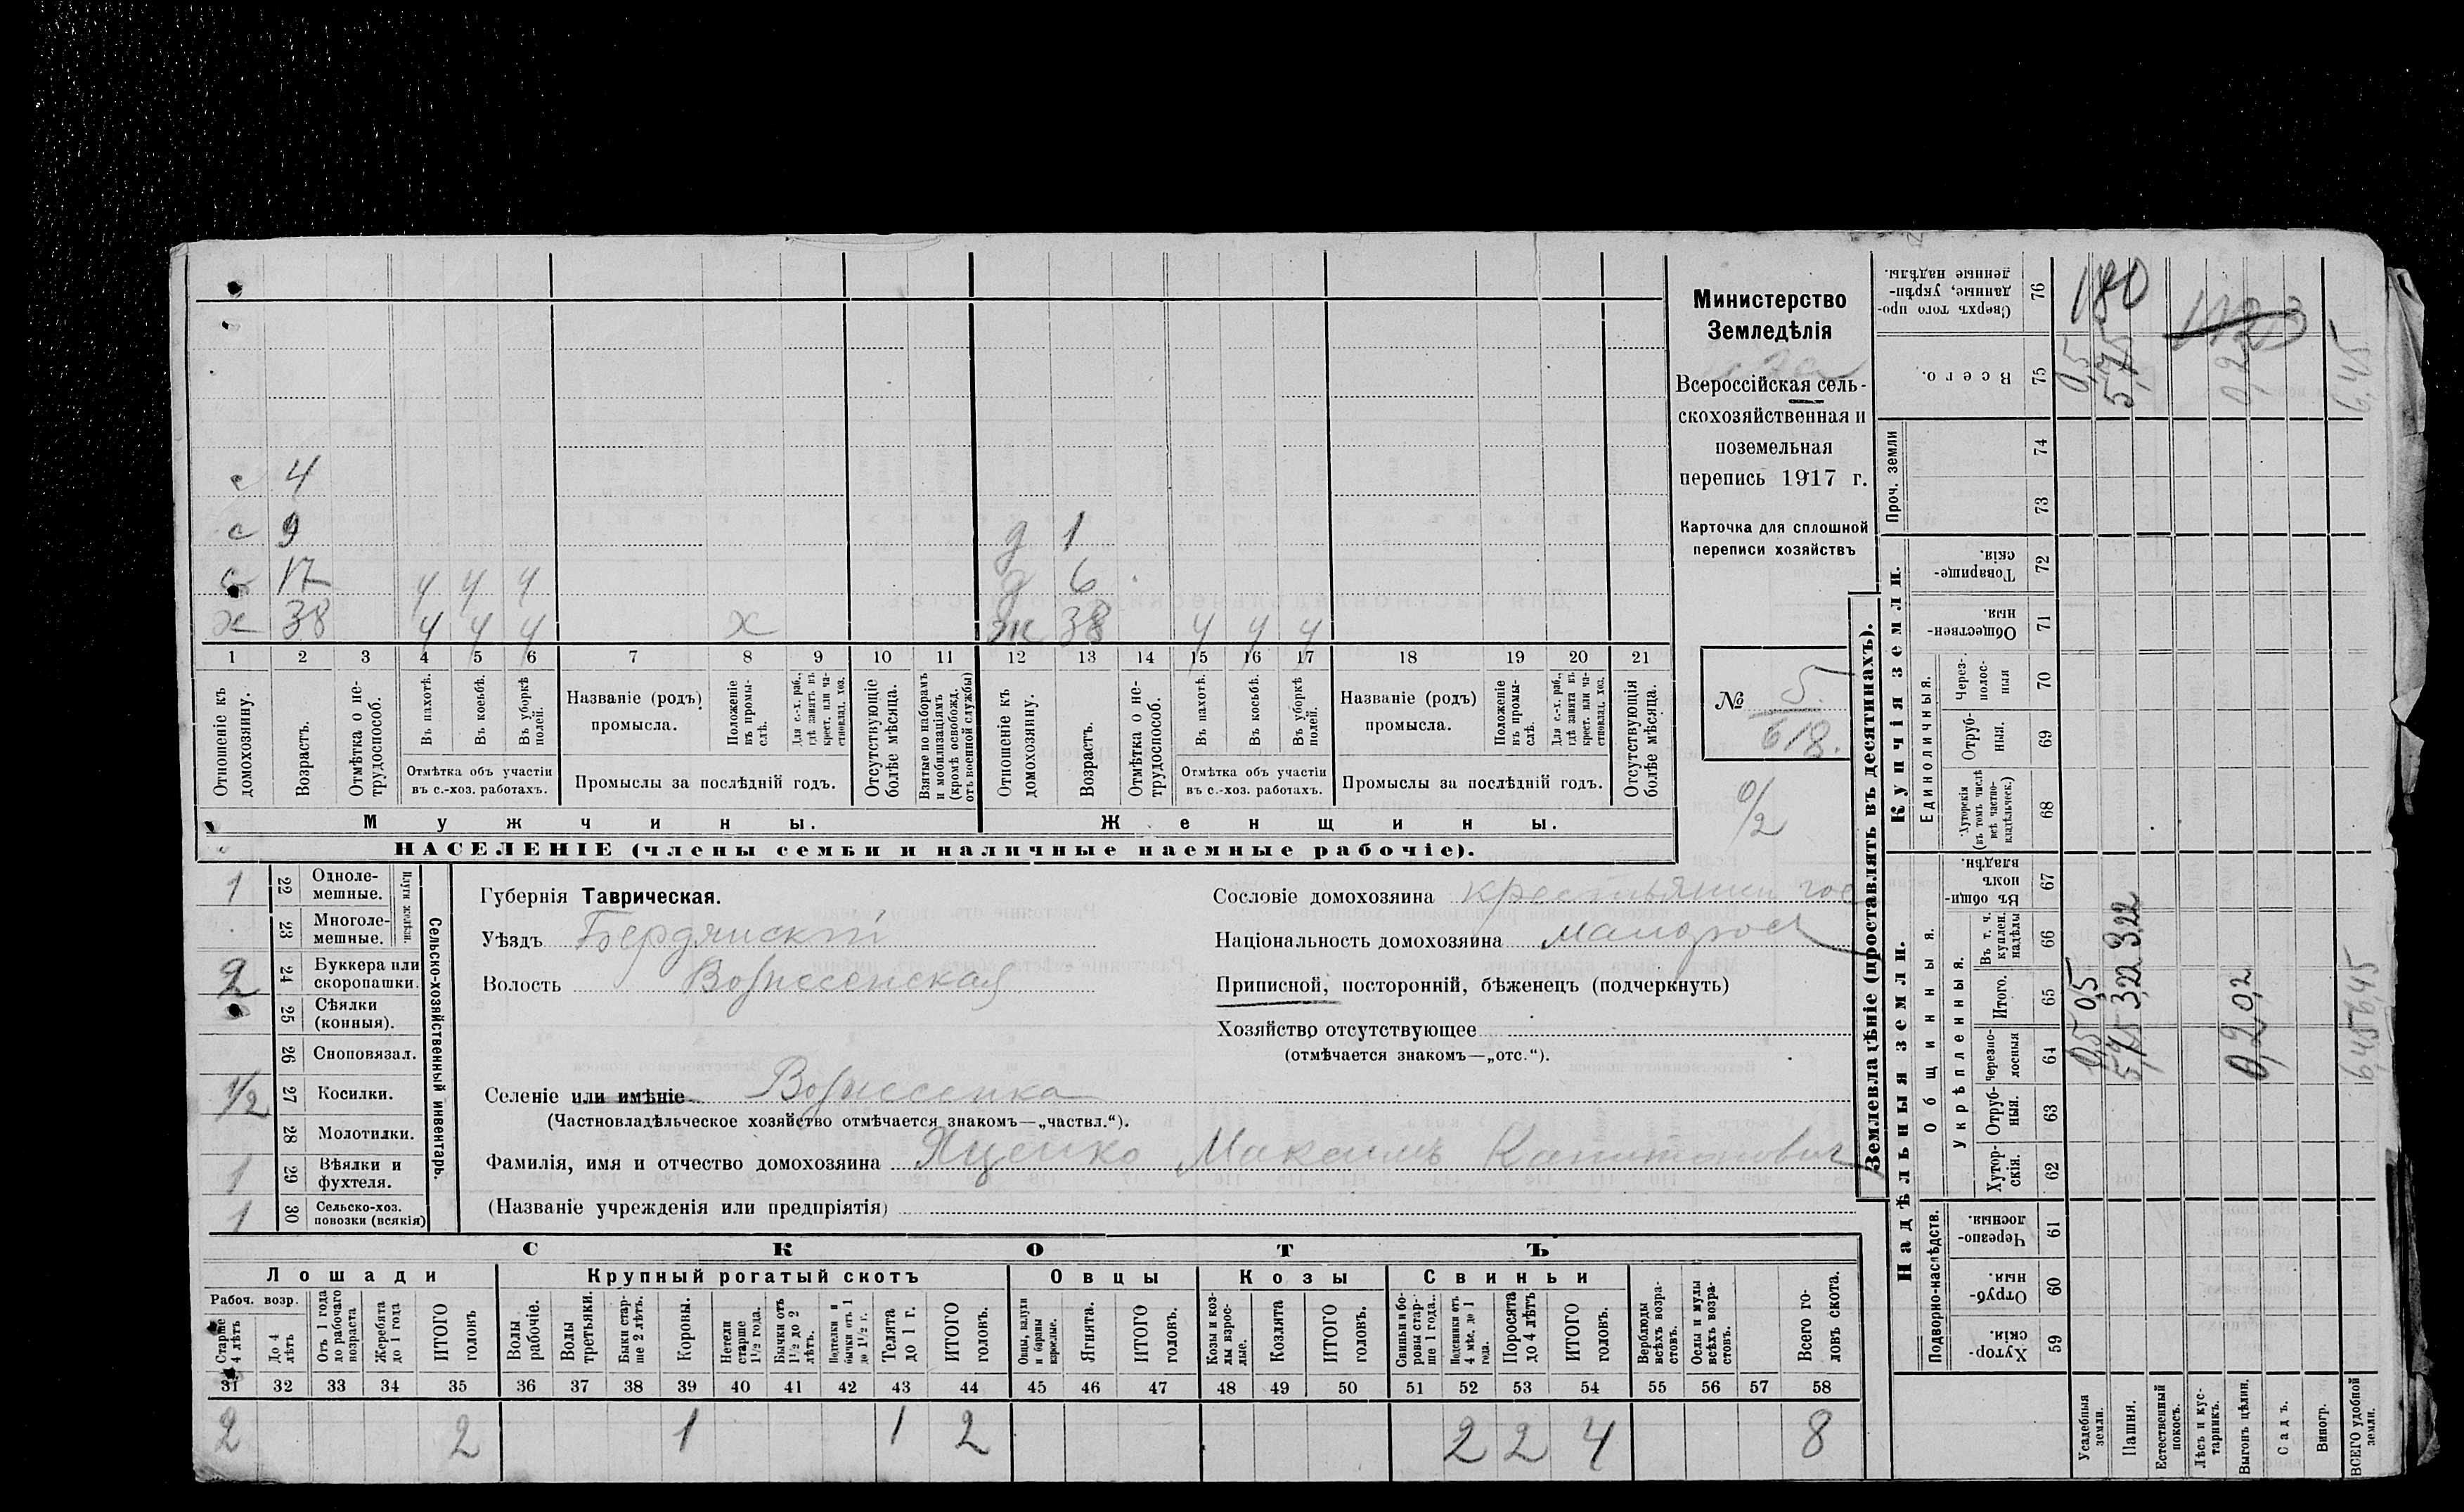 с 4
с 9
с 17 ч ч ч
х 38 ч ч ч х
д 1
д 6
ж 38 ч ч ч
1 2 3 4 5 6 7 8 9 10 11 12 13 14 15 16 17 18 19 20 21
Отношеніе къ домохозяину.
Возрастъ.
Отмѣтка о не-трудоспособ.
Въ пахотѣ.
Въ косьбѣ.
Въ уборкѣ полей.
Отмѣтка объ участіи
въ с.-хоз. работахъ.
Названіе (родъ)
промысла.
Положеніе въ промы-слѣ.
Для с.-х. раб., гдѣ занятъ въ крест. или ча-стновлад. хоз.
Промыслы за послѣдній годъ.
Отсутствующіе болѣе мѣсяца.
Взятые по наборамъ и мобилизаціямъ (кромѣ освобожд. отъ военной службы)
Отношеніе къ домохозяину.
Возрастъ.
Отмѣтка о не-трудоспособ.
Въ пахотѣ.
Въ косьбѣ.
Въ уборкѣ полей.
Отмѣтка объ участіи
въ с.-хоз. работахъ.
Названіе (родъ)
промысла.
Положеніе въ промы-слѣ.
Для с.-х. раб., гдѣ занята въ крест. или ча-стновлад. хоз.
Промыслы за послѣдній годъ.
Отсутствующія болѣе мѣсяца.
Мужчины.
Женщины.
НАСЕЛЕНІЕ (члены семьи и наличные наемные рабочіе).
Министерство
Земледѣлія
Всероссійская сель-
скохозяйственная и
поземельная
перепись 1917 г.
Карточка для сплошной
переписи хозяйствъ
№ 5
618.
0/2
Сельско-хозяйственный инвентарь.
Плуги желѣзн.
1 22 Одноле-мешные.
23 Многоле-мешные.
2 24 Буккера или скоропашки.
25 Сѣялки (конныя).
26 Сноповязал.
1/2 27 Косилки.
28 Молотилки.
1 29 Вѣялки и фухтеля.
1 30 Сельско-хоз. повозки (всякія)
Губернія Таврическая.
Уѣздъ Бердянскій
Волость Вознесенская
Селеніе или имѣніе Вознесенка
(Частновладѣльческое хозяйство отмѣчается знакомъ—„частвл.“).
Фамилія, имя и отчество домохозяина Яценко Максимъ Капитонович
(Названіе учрежденія или предпріятія)
Сословіе домохозяина крестьянин гос
Національность домохозяина малорос
Приписной, посторонній, бѣженецъ (подчеркнуть)
Хозяйство отсутствующее
(отмѣчается знакомъ—„отс.“).
СКОТЪ
Лошади
Крупный рогатый скотъ
Овцы
Козы
Свиньи
Рабоч. возр.
Старше 4 лѣтъ
До 4 лѣтъ
Отъ 1 года до рабочаго возраста
Жеребята до 1 года
ИТОГО головъ
Волы рабочіе.
Волы третьяки.
Быки стар-ше 2 лѣтъ.
Коровы.
Нетели старше 1½ года.
Бычки отъ 1½ до 2 лѣтъ.
Подтелки и бычки отъ 1 до 1½ г.
Телята до 1 г.
ИТОГО головъ.
Овцы, валухи и бараны взрослые.
Ягнята.
ИТОГО головъ.
Козы и коз-лы взрос-лые.
Козлята
ИТОГО головъ.
Свиньи и бо-ровы стар-ше 1 года..
Подсвинки отъ 4 мѣс. до 1 года.
Поросята до 4 лѣтъ
ИТОГО головъ.
Верблюды всѣхъ возра-стовъ.
Ослы и мулы всѣхъ возра-стовъ.
Всего го-ловъ скота.
31 32 33 34 35 36 37 38 39 40 41 42 43 44 45 46 47 48 49 50 51 52 53 54 55 56 57 58
2 2 1 1 2 2 2 4 8
Землевладѣніе (проставлять въ десятинахъ).
Надѣльныя земли.
Купчія земли.
Проч. земли
Подворно-наслѣдств.
Общинныя.
Укрѣпленныя.
Единоличныя.
Хутор-скія. 59
Отруб-ныя. 60
Черезпо-лосныя. 61
Хутор-скія. 62
Отруб-ныя. 63
Черезпо-лосныя 64
Итого. 65
Въ т. ч. куплен. надѣлы 66
Въ общин-номъ владѣн. 67
Хуторскія (въ томъ числѣ всѣ частно-владѣльческ.) 68
Отруб-ныя. 69
Через-полос-ныя 70
Обществен-ныя. 71
Товарище-скія. 72
73
74
Всего. 75
Сверхъ того про-данные, укрѣп-ленные надѣлы. 76
Усадебныя земли. 0,5 0,5 0,5 180
Пашня. 5,75 322 322 5,75
Естественный покосъ.
Лѣсъ и кус-тарникъ.
Выгонъ цѣлин. 0,2 0,2 0,2
Садъ.
Виногр.
ВСЕГО удобной земли. 6,45 6,45 6,45